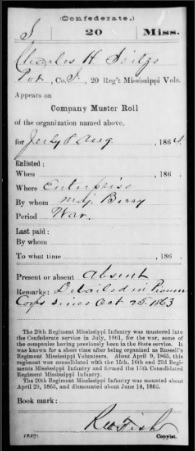 (Confederate.)
S 20 Miss.
Charles H. Seitze
Pvt., Co. F, 20 Reg't Mississippi Vols.
Appears on
Company Muster Roll
of the organization named above,
for July & Aug, 1864.
Enlisted:
When , 186 .
Where Enterprise
By whom Maj. Berry
Period War.
Last paid:
By whom
To what time , 186 .
Present or absent Absent
Remarks: Detailed in Pioneer
Corps since Oct 25, 1863
The 20th Regiment Mississippi Infantry was mustered into
the Confederate service in July, 1861, for the war, some of the
companies having previously been in the State service. It
was known for a short time after being organized as Russell's
Regiment Mississippi Volunteers. About April 9, 1865, this
regiment was consolidated with the 15th, 16th and 23d Regiments
Mississippi Infantry and formed the 15th Consolidated
Regiment Infantry.
The 20th Regiment Mississippi Infantry was mounted about
April 29, 1863, and dismounted about June 14, 1863.
Book mark:
Copyist.